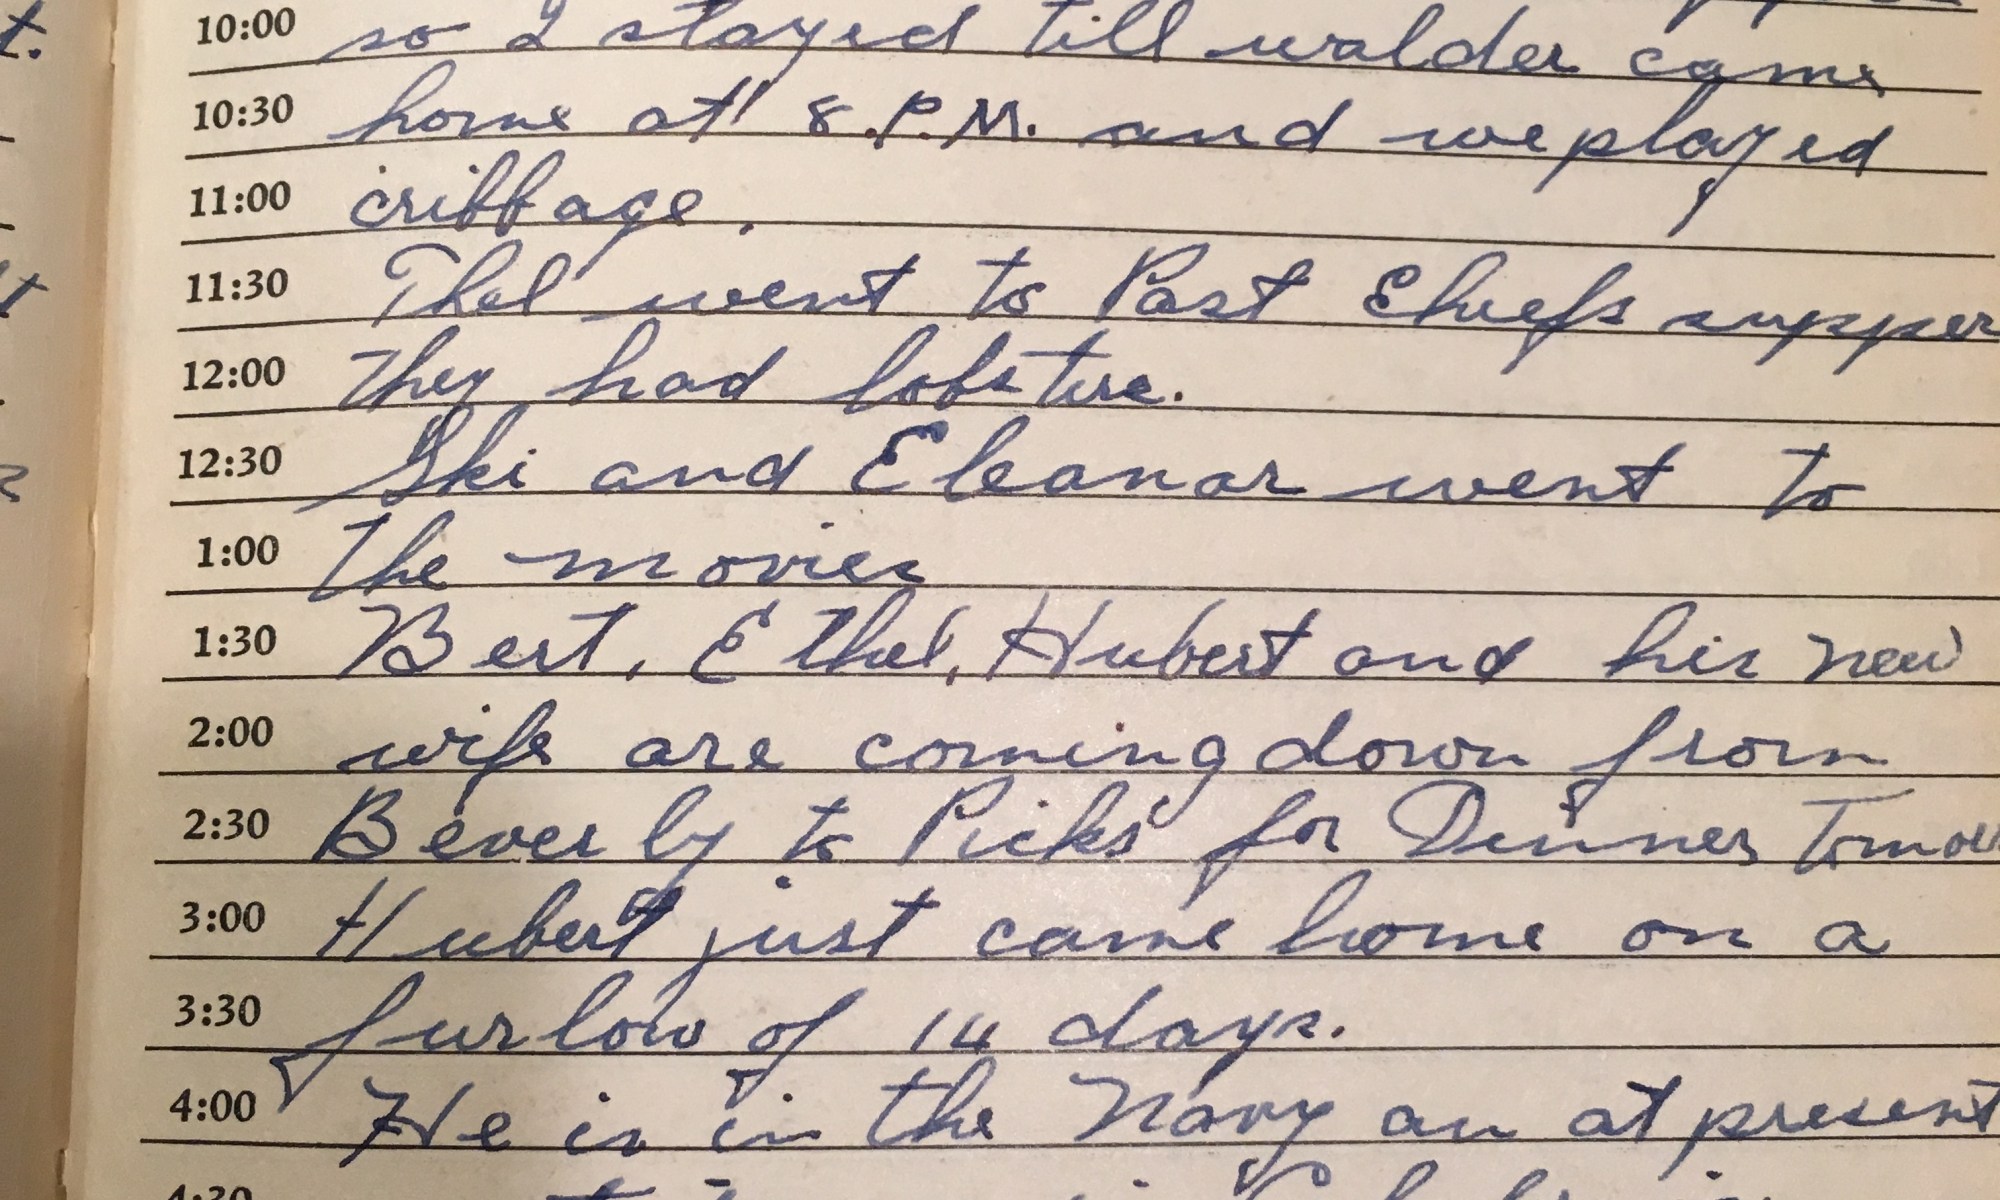 10:00 so I stayed till walder came
10:30 home at 8.P.M. and we played
11:00 cribbage.
11:30 Thel went to Past Chiefs supper
12:00 they had lobsture.
12:30 Ski and Eleanor went to
1:00 the movies
1:30 Bert, Ethel, Hubert and his new
2:00 wife are coming down from
2:30 Beverly to Picks for Dinner
3:00 Hubert just came home on a
3:30 furlow of 14 days.
4:00 He is in the Navy an at present
4:30